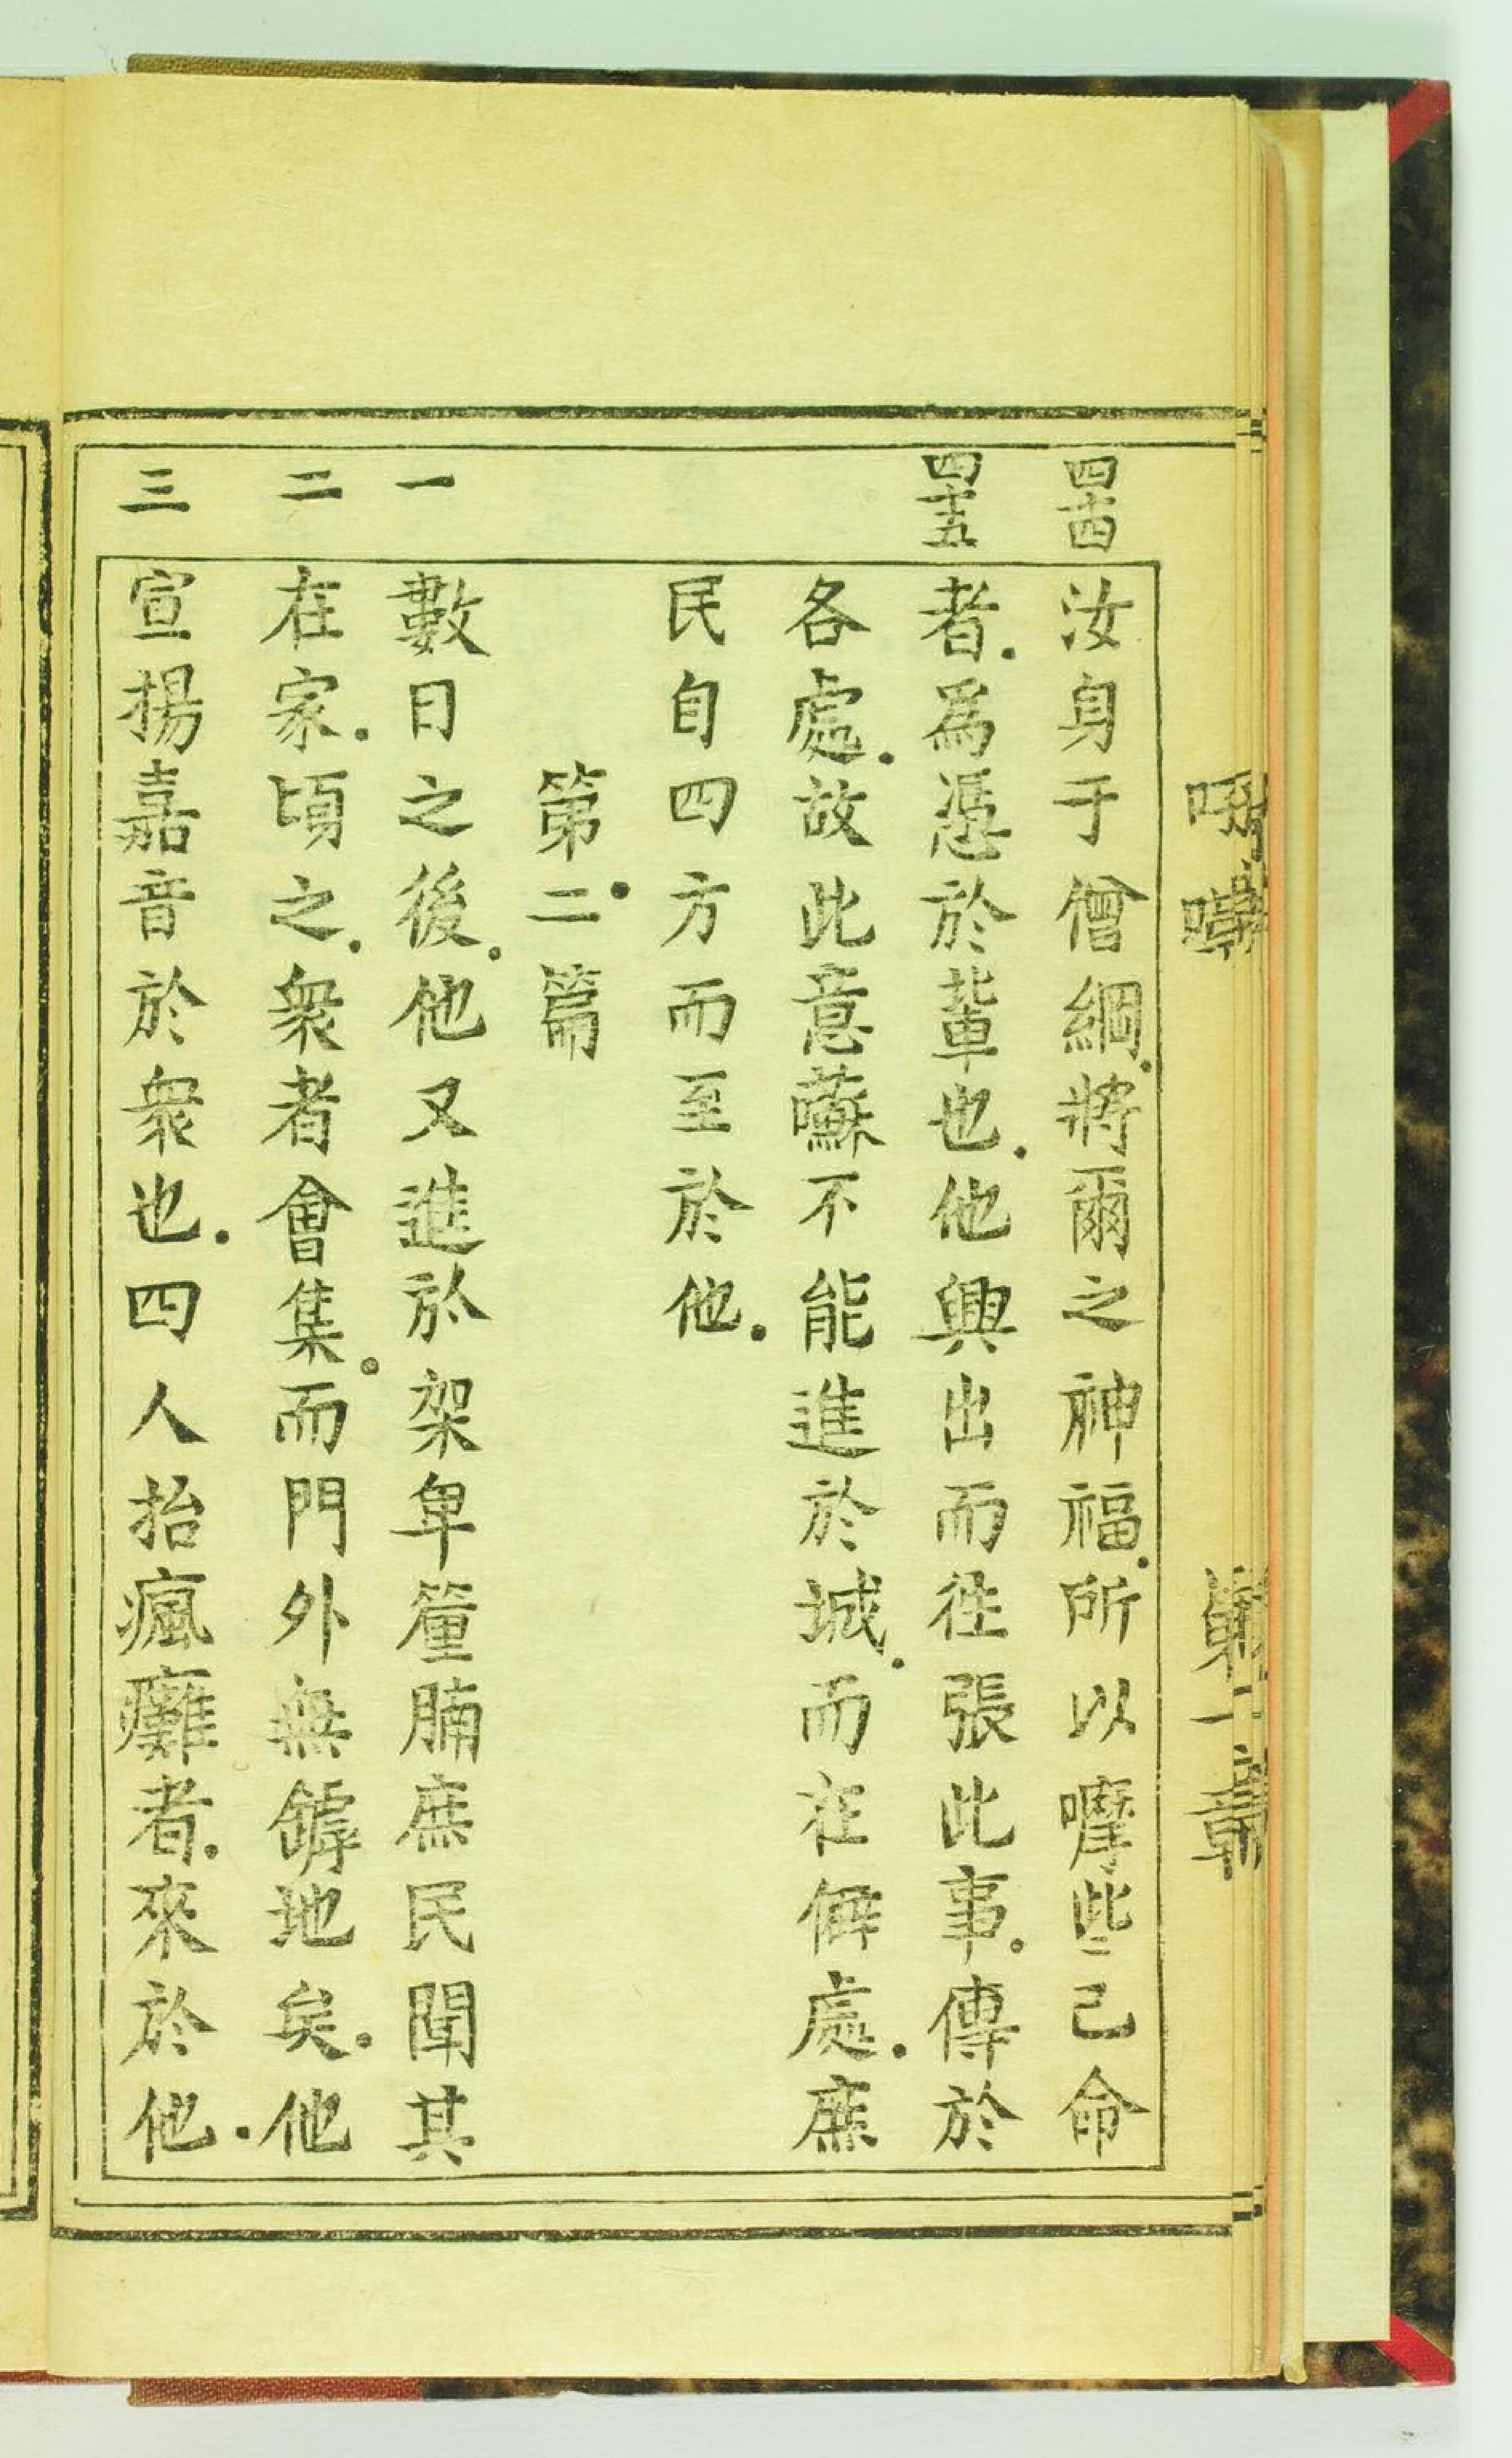 四十四
汝身于僧綱.將爾之神福.所以嚤些己命
四十五
者.為慿於輩也.他興出而徃張此事.傳於
各處.故此意㘓不能進於城.而在僻處.庶
民自四方而至於他.
第二篇
一
數日之後.他又進於架卑㒓腩庶民聞其
二
在家.頃之.衆者會集.而門外無罅地矣.他
三
宣揚嘉音於衆也.四人抬瘋癱者.來於他.
第二章